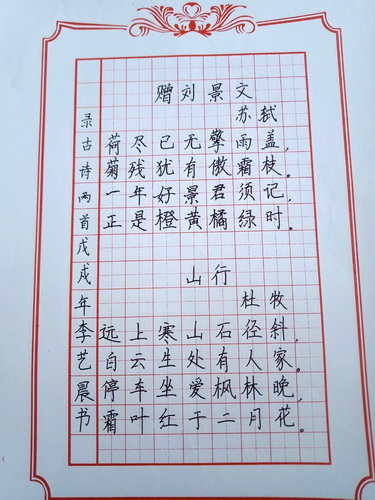 赠刘景文
苏轼
荷尽已无擎雨盖,
菊残犹有傲霜枝。
一年好景君须记,
正是橙黄橘绿时。
山行
杜牧
远上寒山石径斜,
白云生处有人家。
停车坐爱枫林晚,
霜叶红于二月花。
录古诗两首戊戌年李艺晨书